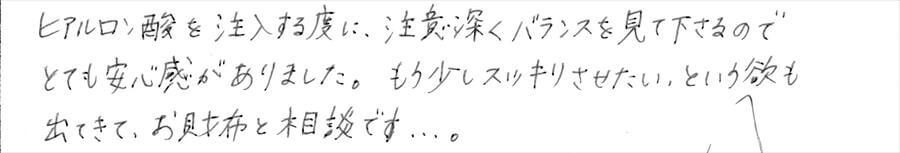 ヒアルロン酸を注入する度に、注意深くバランスを見て下さるので
とても安心感がありました。もう少しスッキリさせたい、という欲も
出てきて、お財布と相談です…。